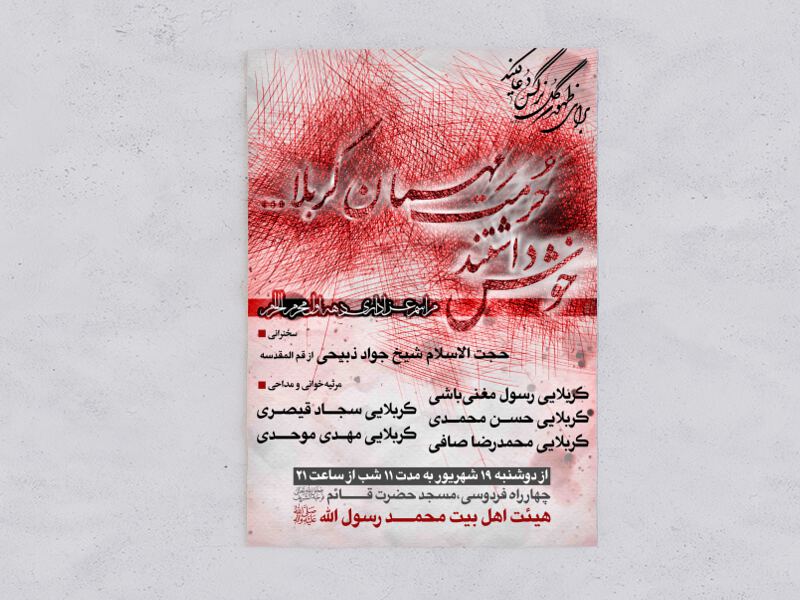 برای ظهور گل نرگس دعا کنید
خوش داشتند
حرمت میهمان کربلا...
مراسم عزاداری دهه اول محرم الحرام
سخنرانی
حجت الاسلام شیخ جواد ذبیحی از قم المقدسه
مرثیه‌خوانی و مداحی
کربلایی رسول مغنی‌باشی
کربلایی حسن محمدی
کربلایی محمدرضا صافی
کربلایی سجاد قیصری
کربلایی مهدی موحدی
از دوشنبه ۱۹ شهریور به مدت ۱۱ شب از ساعت ۲۱
چهارراه فردوسی، مسجد حضرت قائم
هیئت اهل بیت محمد رسول الله